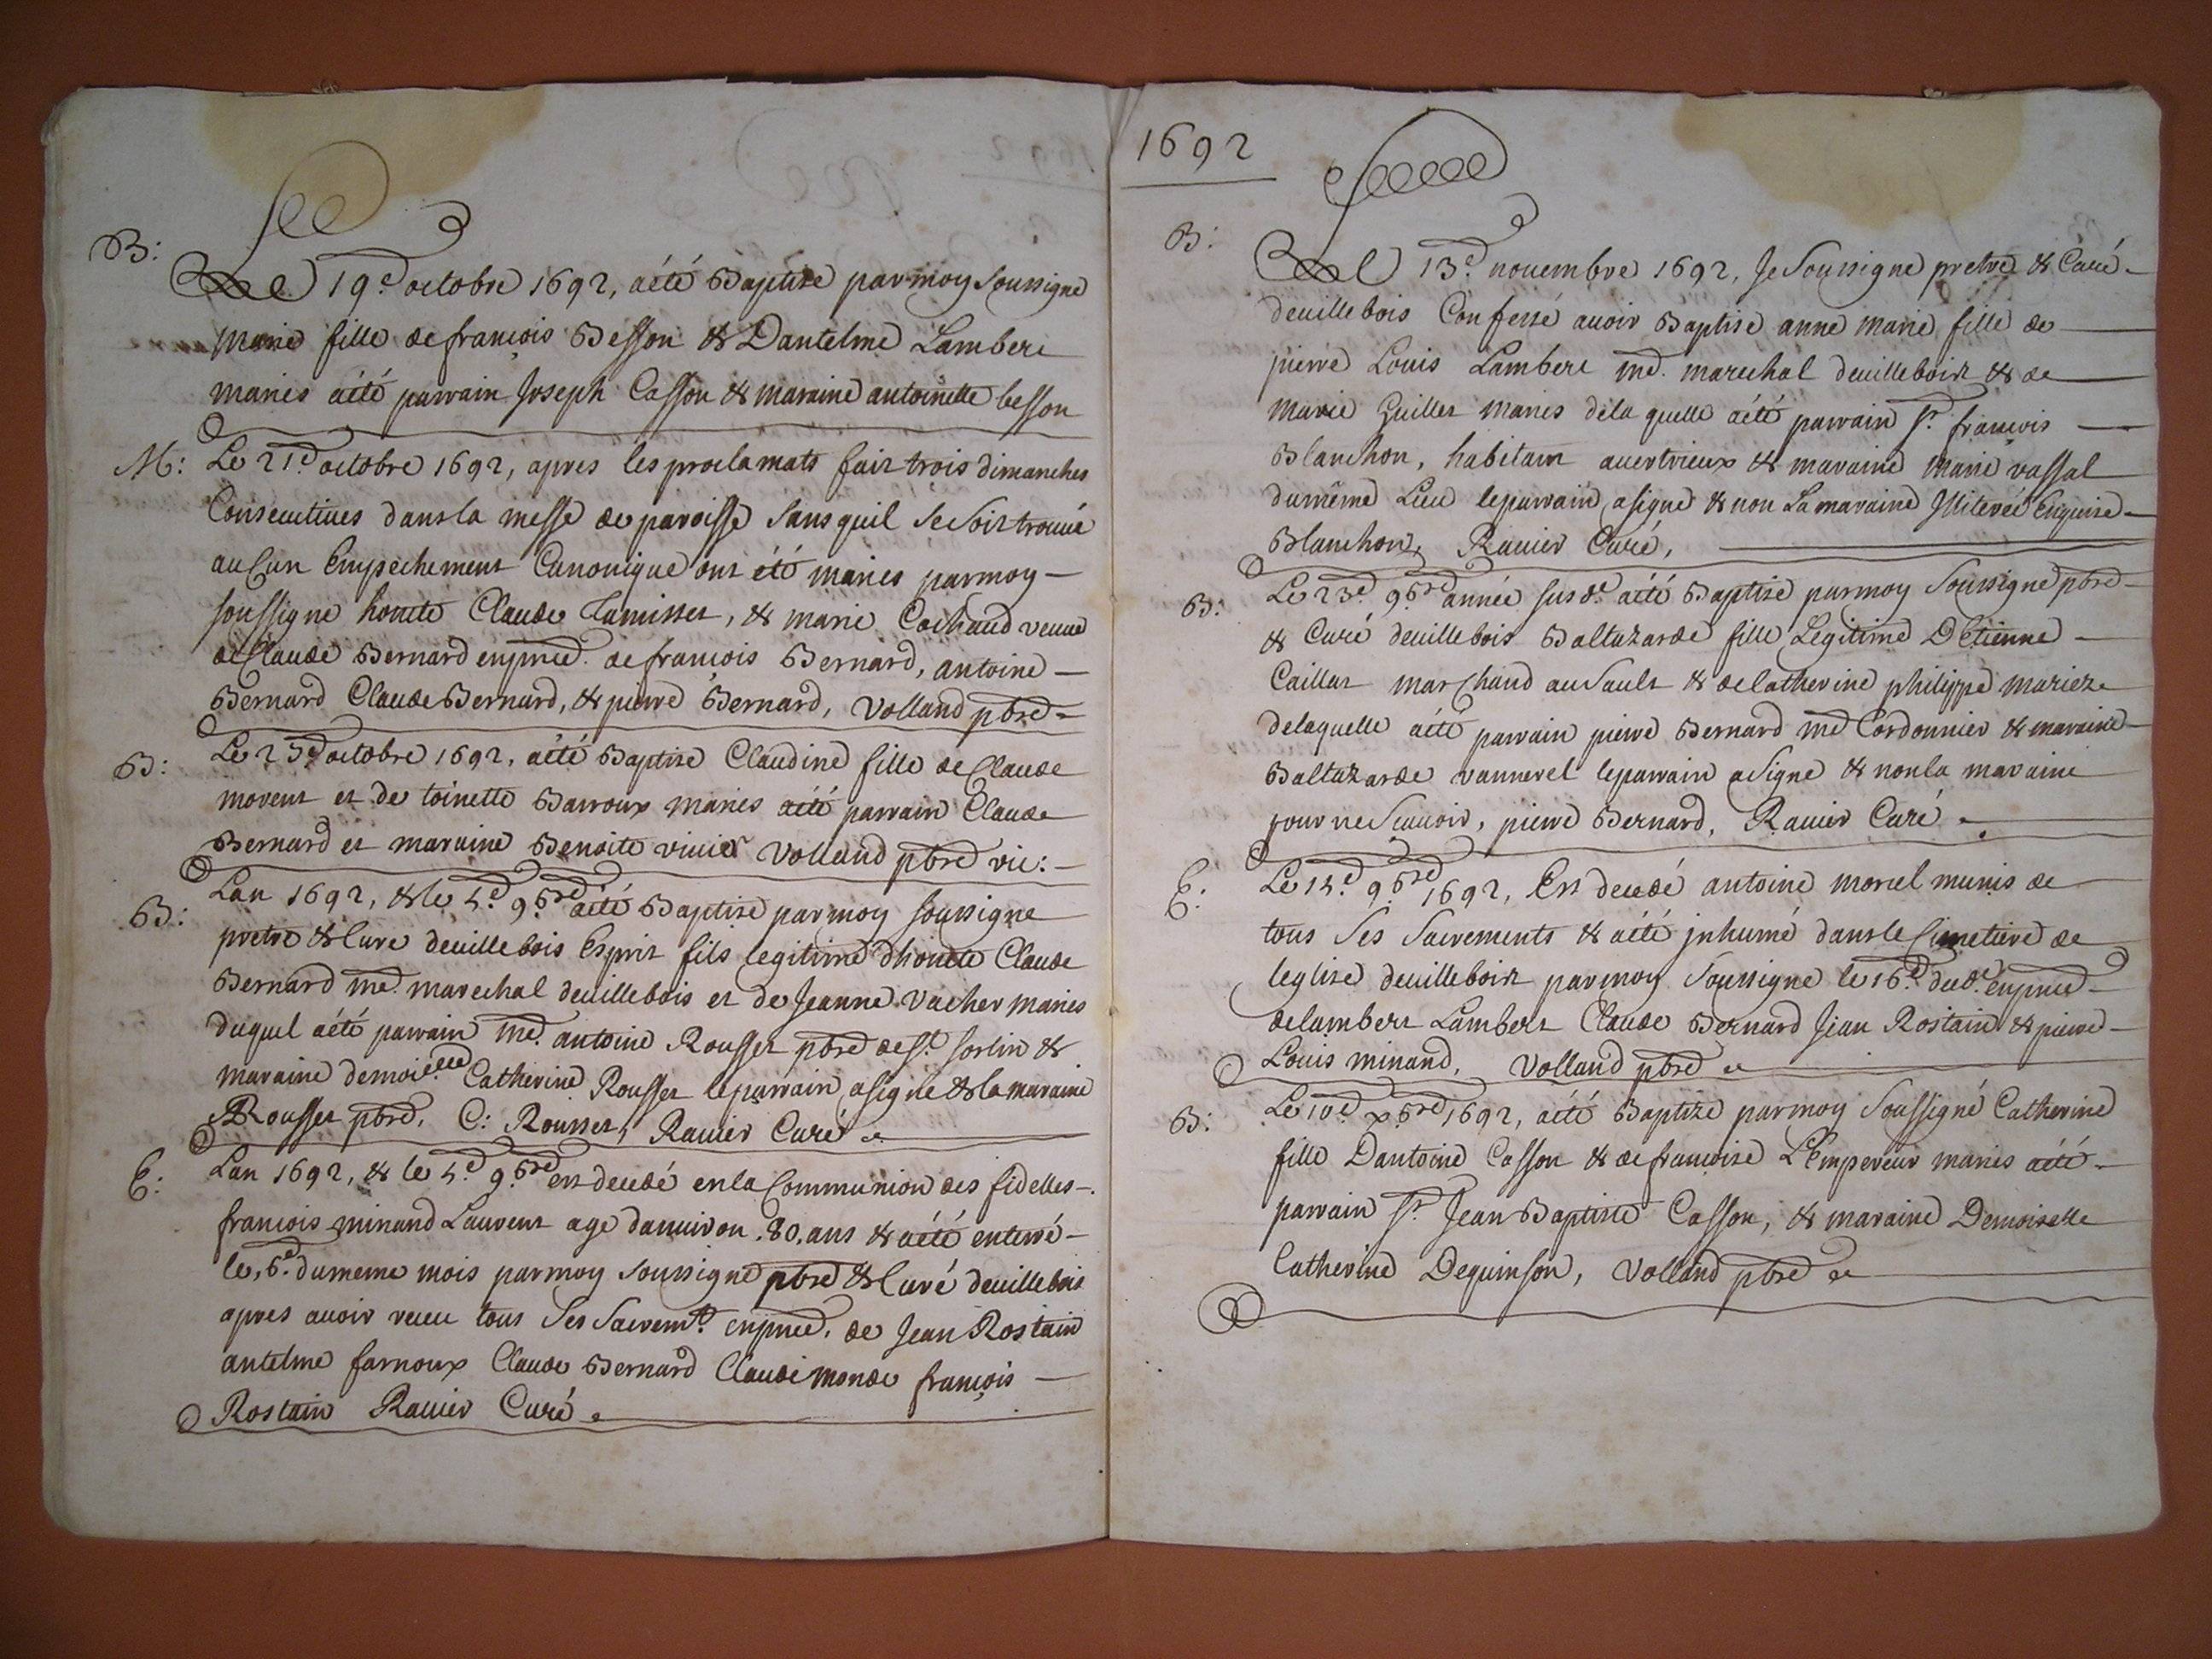 B:
Le 19.e octobre 1692, aété Baptise parmoy Soussigne
marie fille de francois Besson & Dantelme Lambert
maries aété parrain Joseph Casson & maraine antoinette besson
M: Le 21.e octobre 1692, apres les proclamats fait trois dimanches
Consecutives dans la messe de paroisse sans quil se soit trouvé
auCun Empechement Canonique ont été maries parmoy —
soussigne honete Claude Tamisset, & marie Cochaud veuve
de Claude Bernard enpnce. de francois Bernard, antoine —
Bernard Claude Bernard, & pierre Bernard, Volland pbre
B: Le 25e octobre 1692, aété Baptise Claudine fille de Claude
morent et de toinette Barroux maries aété parrain Claude
Bernard et maraine Benoite Volland pbre vic: —
B: Lan 1692, & le 4.e 9.bre aété Baptise parmoy soussigne
pretre & Cure deuillebois Esprit fils legitime dhonete Claude
Bernard me. marechal deuillebois et de Jeanne Vacher maries
duquel aété parrain me. antoine Rousset pbre de St. sorlin &
maraine demoielle Catherine Rousset leparrain asigné & la maraine
ARousset pbre, C: Rousset, Ravier Curé
E: Lan 1692, & le 4.e 9.bre est decedé en la Communion des fidelles —.
francois minand Laurent age danuiron .80. ans & aété enterré —
le .6.e dumeme mois parmoy soussigne pbre & Curé deuillebois
apres avoir receu tous Ses Sacremts. enpnce. de Jean Rostain
antelme farnoux Claude Bernard Claude monde françois —
Rostain Ravier Curé
1692
B:
Le 13.e nouembre 1692, Je Soussigne pretre & Curé —
deuillebois Confessé auoir Baptise anne marie fille de —
pierre Louis Lambert me. marechal deuillebois & de —
marie Guillet maries dela quelle aété parrain sr. francois —
Blanchon, habitant auertrieux & maraine marie vassal
dumême Lieu leparrain asigne & non La maraine Jlliterée Enquise —
Blanchon, Ravier Curé,
B: Le 23.e 9.bre année susd.e aété Baptisé parmoy Soussigne pbre —
& Curé deuillebois Baltazarde fille Legitime DEtienne —
Caillat marChand au Sault & de Catherine philippe mariez
delaquelle aété parrain pierre Bernard me Cordonnier & maraine —
Baltazarde vannerel leparrain aSigne & nonla maraine
pour ne Scauoir, pierre Bernard, Ravier Curé
E: Le 14.e 9.bre 1692, Est decedé antoine morel munis de
tous Ses Sacrements & aété jnhumé dansle Cimetiere de
leglise deuillebois parmoy Soussigne le 16.e dud.e enpnce —
delambert Lambert Claude Bernard Jean Rostain & pierre —
Louis minand, Volland pbre
B: Le 10e xbre 1692, aété Baptizé parmoy Soussigné Catherine
fille Dantoine Casson & de francoise LEmpereur maries aété —
parrain sr. Jean Baptiste Casson, & maraine Demoiselle
Catherine Dequinson, Volland pbre